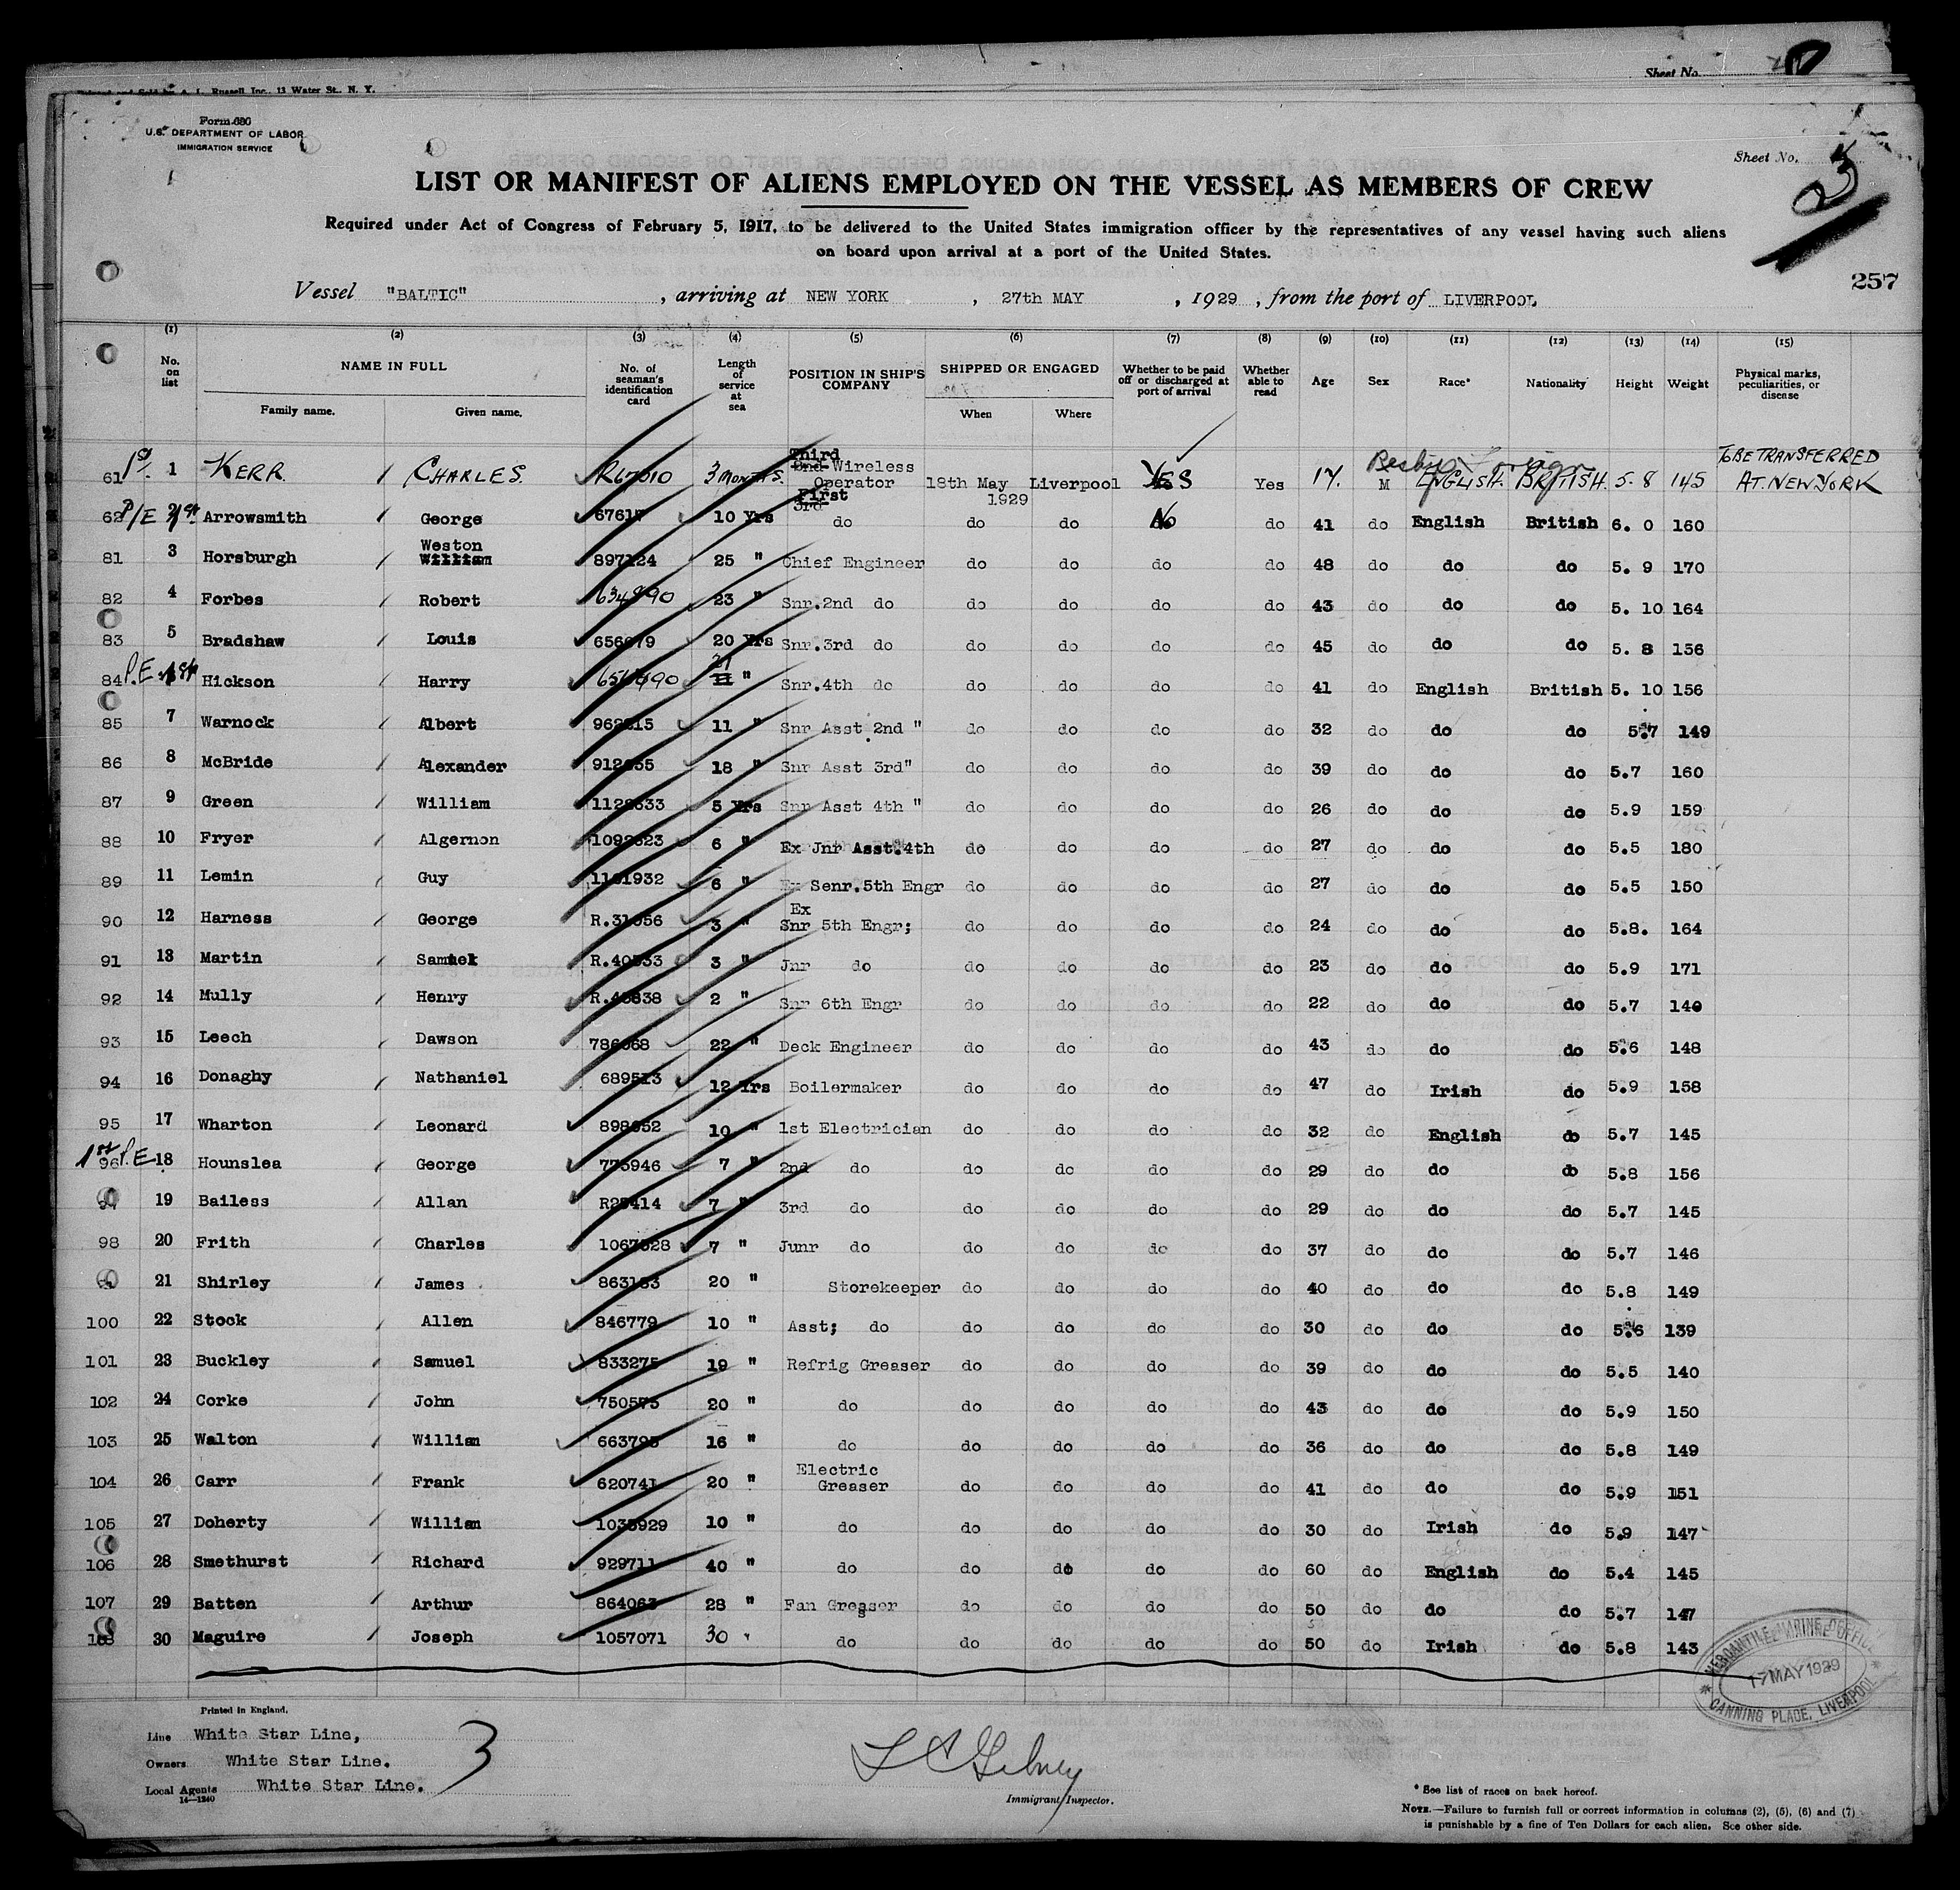 Printed and Sold by A. L. Russell Inc., 13 Water St., N. Y.
Sheet No.
Form 680
U.S. DEPARTMENT OF LABOR
IMMIGRATION SERVICE
Sheet No. 3
LIST OR MANIFEST OF ALIENS EMPLOYED ON THE VESSEL AS MEMBERS OF CREW
Required under Act of Congress of February 5, 1917, to be delivered to the United States immigration officer by the representatives of any vessel having such aliens
on board upon arrival at a port of the United States.
257
Vessel "BALTIC", arriving at NEW YORK, 27th MAY, 1929, from the port of LIVERPOOL
(1) (2) (3) (4) (5) (6) (7) (8) (9) (10) (11) (12) (13) (14) (15)
No. on list NAME IN FULL Family name. Given name. No. of seaman's identification card Length of service at sea POSITION IN SHIP'S COMPANY SHIPPED OR ENGAGED When Where Whether to be paid off or discharged at port of arrival Whether able to read Age Sex Race* Nationality Height Weight Physical marks, peculiarities, or disease
61 1st 1 KERR CHARLES. R67010 3 MONTHS. Third 2nd Wireless Operator 18th May 1929 Liverpool YES Yes 17. M ENGLISH. BRITISH. 5.8 145 TO BE TRANSFERRED AT NEW YORK
62 P/E 1st Arrowsmith George 67617 10 Yrs First 3rd do do do No do 41 do English British 6. 0 160
81 3 Horsburgh Weston William 897124 25 " Chief Engineer do do do do 48 do do do 5. 9 170
82 4 Forbes Robert 634890 23 " Snr.2nd do do do do do 43 do do do 5. 10 164
83 5 Bradshaw Louis 656679 20 Yrs Snr.3rd do do do do do 45 do do do 5. 8 156
84 P.E 1st Hickson Harry 21 " Snr.4th do do do do do 41 do English British 5. 10 156
85 7 Warnock Albert 962815 11 " Snr Asst 2nd " do do do do 32 do do do 5.7 149
86 8 McBride Alexander 912635 18 " Snr Asst 3rd" do do do do 39 do do do 5.7 160
87 9 Green William 1128333 5 Yrs Snr Asst 4th " do do do do 26 do do do 5.9 159
88 10 Fryer Algernon 1092323 6 " Ex Jnr Asst.4th do do do do 27 do do do 5.5 180
89 11 Lemin Guy 1101932 6 " Ex Senr.5th Engr do do do do 27 do do do 5.5 150
90 12 Harness George R.31056 3 " Ex Snr 5th Engr; do do do do 24 do do do 5.8. 164
91 13 Martin Samuel R.40533 3 " Jnr do do do do do 23 do do do 5.9 171
92 14 Mully Henry R.48838 2 " Snr 6th Engr do do do do 22 do do do 5.7 140
93 15 Leech Dawson 786668 22 " Deck Engineer do do do do 43 do do do 5.6 148
94 16 Donaghy Nathaniel 689513 12 Yrs Boilermaker do do do do 47 do Irish do 5.9 158
95 17 Wharton Leonard 898652 10 " 1st Electrician do do do do 32 do English do 5.7 145
96 1st P.E 18 Hounslea George 775946 7 " 2nd do do do do do 29 do do do 5.8 156
97 19 Bailess Allan R25414 7 " 3rd do do do do do 29 do do do 5.7 145
98 20 Frith Charles 1067628 7 " Junr do do do do do 37 do do do 5.7 146
21 Shirley James 863183 20 " Storekeeper do do do do 40 do do do 5.8 149
100 22 Stock Allen 846779 10 " Asst; do do do do do 30 do do do 5.6 139
101 23 Buckley Samuel 833275 19 " Refrig Greaser do do do do 39 do do do 5.5 140
102 24 Corke John 750575 20 " do do do do do 43 do do do 5.9 150
103 25 Walton William 663795 16 " do do do do do 36 do do do 5.8 149
104 26 Carr Frank 620741 20 " Electric Greaser do do do do 41 do do do 5.9 151
105 27 Doherty William 1035929 10 " do do do do do 30 do Irish do 5.9 147
106 28 Smethurst Richard 929711 40 " do do do do do 60 do English do 5.4 145
107 29 Batten Arthur 864063 28 " Fan Greaser do do do do 50 do do do 5.7 147
108 30 Maguire Joseph 1057071 30 " do do do do do 50 do Irish do 5.8 143
MERCANTILE MARINE OFFICE
17 MAY 1929
CANNING PLACE, LIVERPOOL
Printed in England.
Line White Star Line,
Owners White Star Line.
Local Agents White Star Line.
14—1240
3
Immigrant Inspector.
* See list of races on back hereof.
NOTE.—Failure to furnish full or correct information in columns (2), (5), (6) and (7)
is punishable by a fine of Ten Dollars for each alien. See other side.